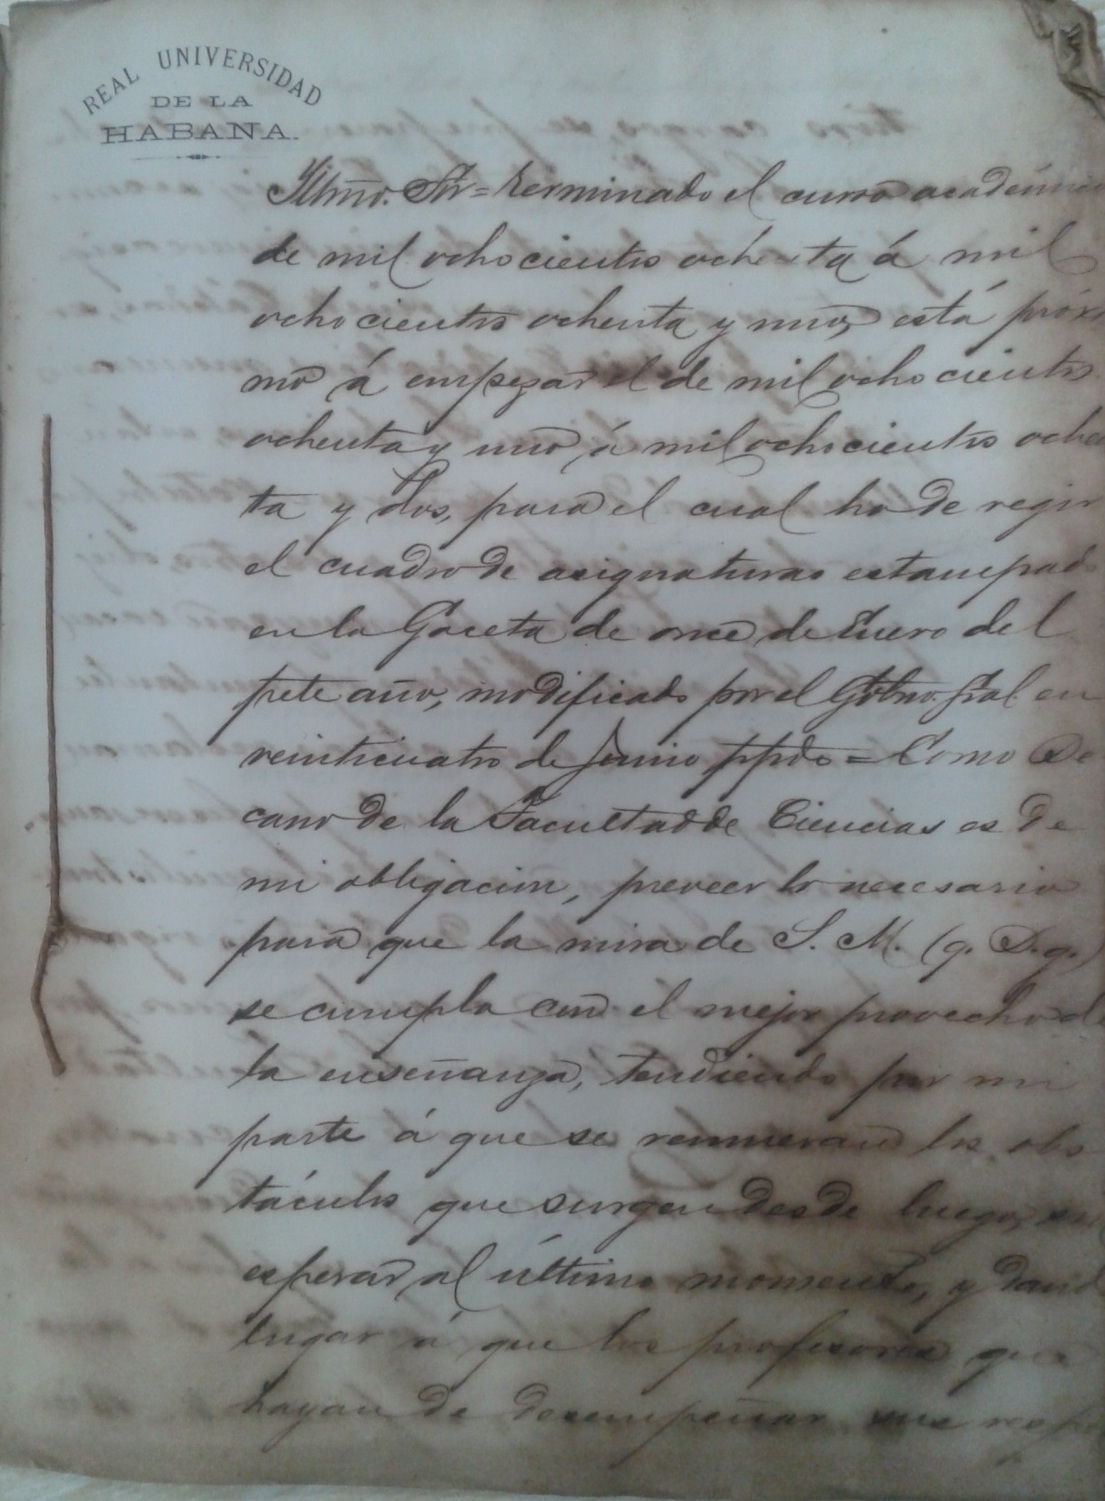 REAL UNIVERSIDAD
DE LA
HABANA.
Iltmo. Sr = Terminado el curso académi
de mil ochocientos oche ta á mil
ochocientos ochenta y uno, está próxi
mo á empezar el de mil ochocientos
ochenta y uno á mil ochocientos oche
ta y dos, para el cual ha de regir
el cuadro de asignaturas estampado
en la Gaceta de once de Enero del
pste año, modificado por el Gobno. Gral. en
veinticuatro de Junio ppdo = Como De
cano de la Facultad de Ciencias es de
mi obligacion, preveer lo necesario
para que la mira de S. M. (q. D. g.)
se cumpla con el mejor provecho de
la enseñanza, tendiendo por mi
parte á que se remuevan los obs
táculos que surgen desde luego, sin
esperar al último momento, y dand
lugar á que los profesores que
hayan de desempeñar sus resp